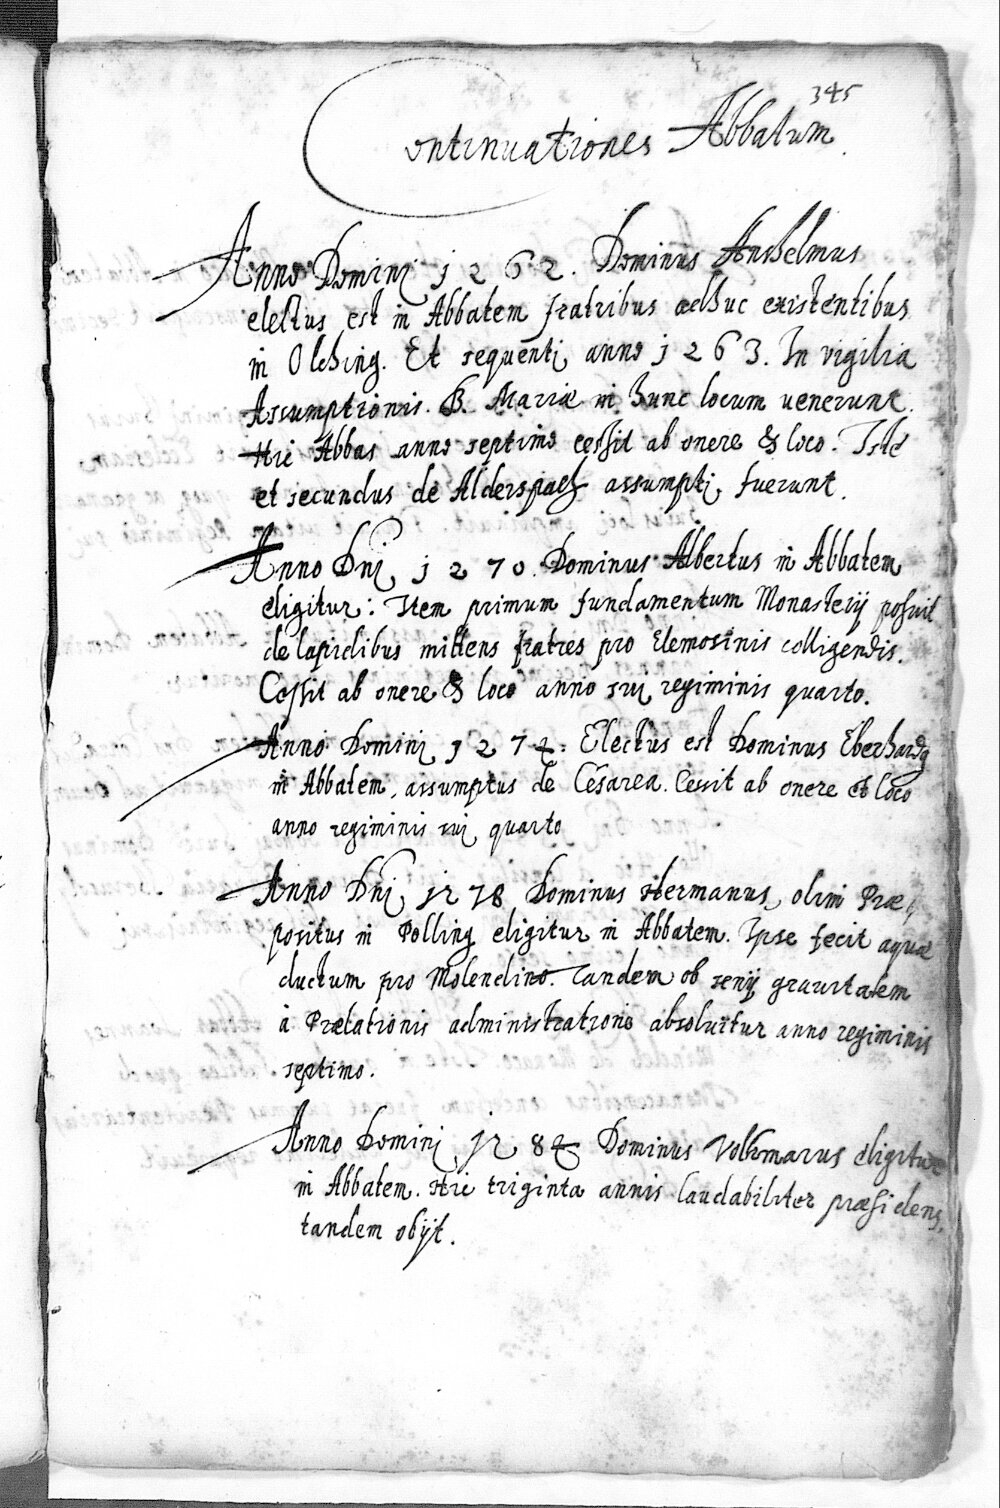 345
Continuationes Abbatum
Anno Domini 1262. Dominus Anshelmus
electus est in Abbatem fratribus adhuc existentibus
in Olching. Et sequenti anno 1263. In vigilia
Assumptionis. B. Mariæ in hunc locum venerunt.
Hic Abbas anno septimo cessit ab onere & loco. Iste
et secundus de Alderspach assumpti fuerunt.
Anno Dnj 1270. Dominus Albertus in Abbatem
eligitur: Item primum fundamentum Monasterij posuit
de lapidibus mittens fratres pro Elemosinis colligendis.
Cessit ab onere & loco anno sui regiminis quarto.
Anno Domini 1274: Electus est Dominus Eberhardq
in Abbatem, assumptus de Cesarea. Cessit ab onere et loco
anno regiminis sui quarto
Anno Dnj 1278 Dominus Hermanus olim Præ
positus in Polling eligitur in Abbatem. Ipse fecit aquæ
ductum pro Molendino. Tandem ob senij gravitatem
à Prælationis administratione absoluitur anno regiminis
septimo.
Anno Domini 1284 Dominus Volkmarus eligitur
in Abbatem. Hic triginta annis laudabiliter præsidens,
tandem obijt.